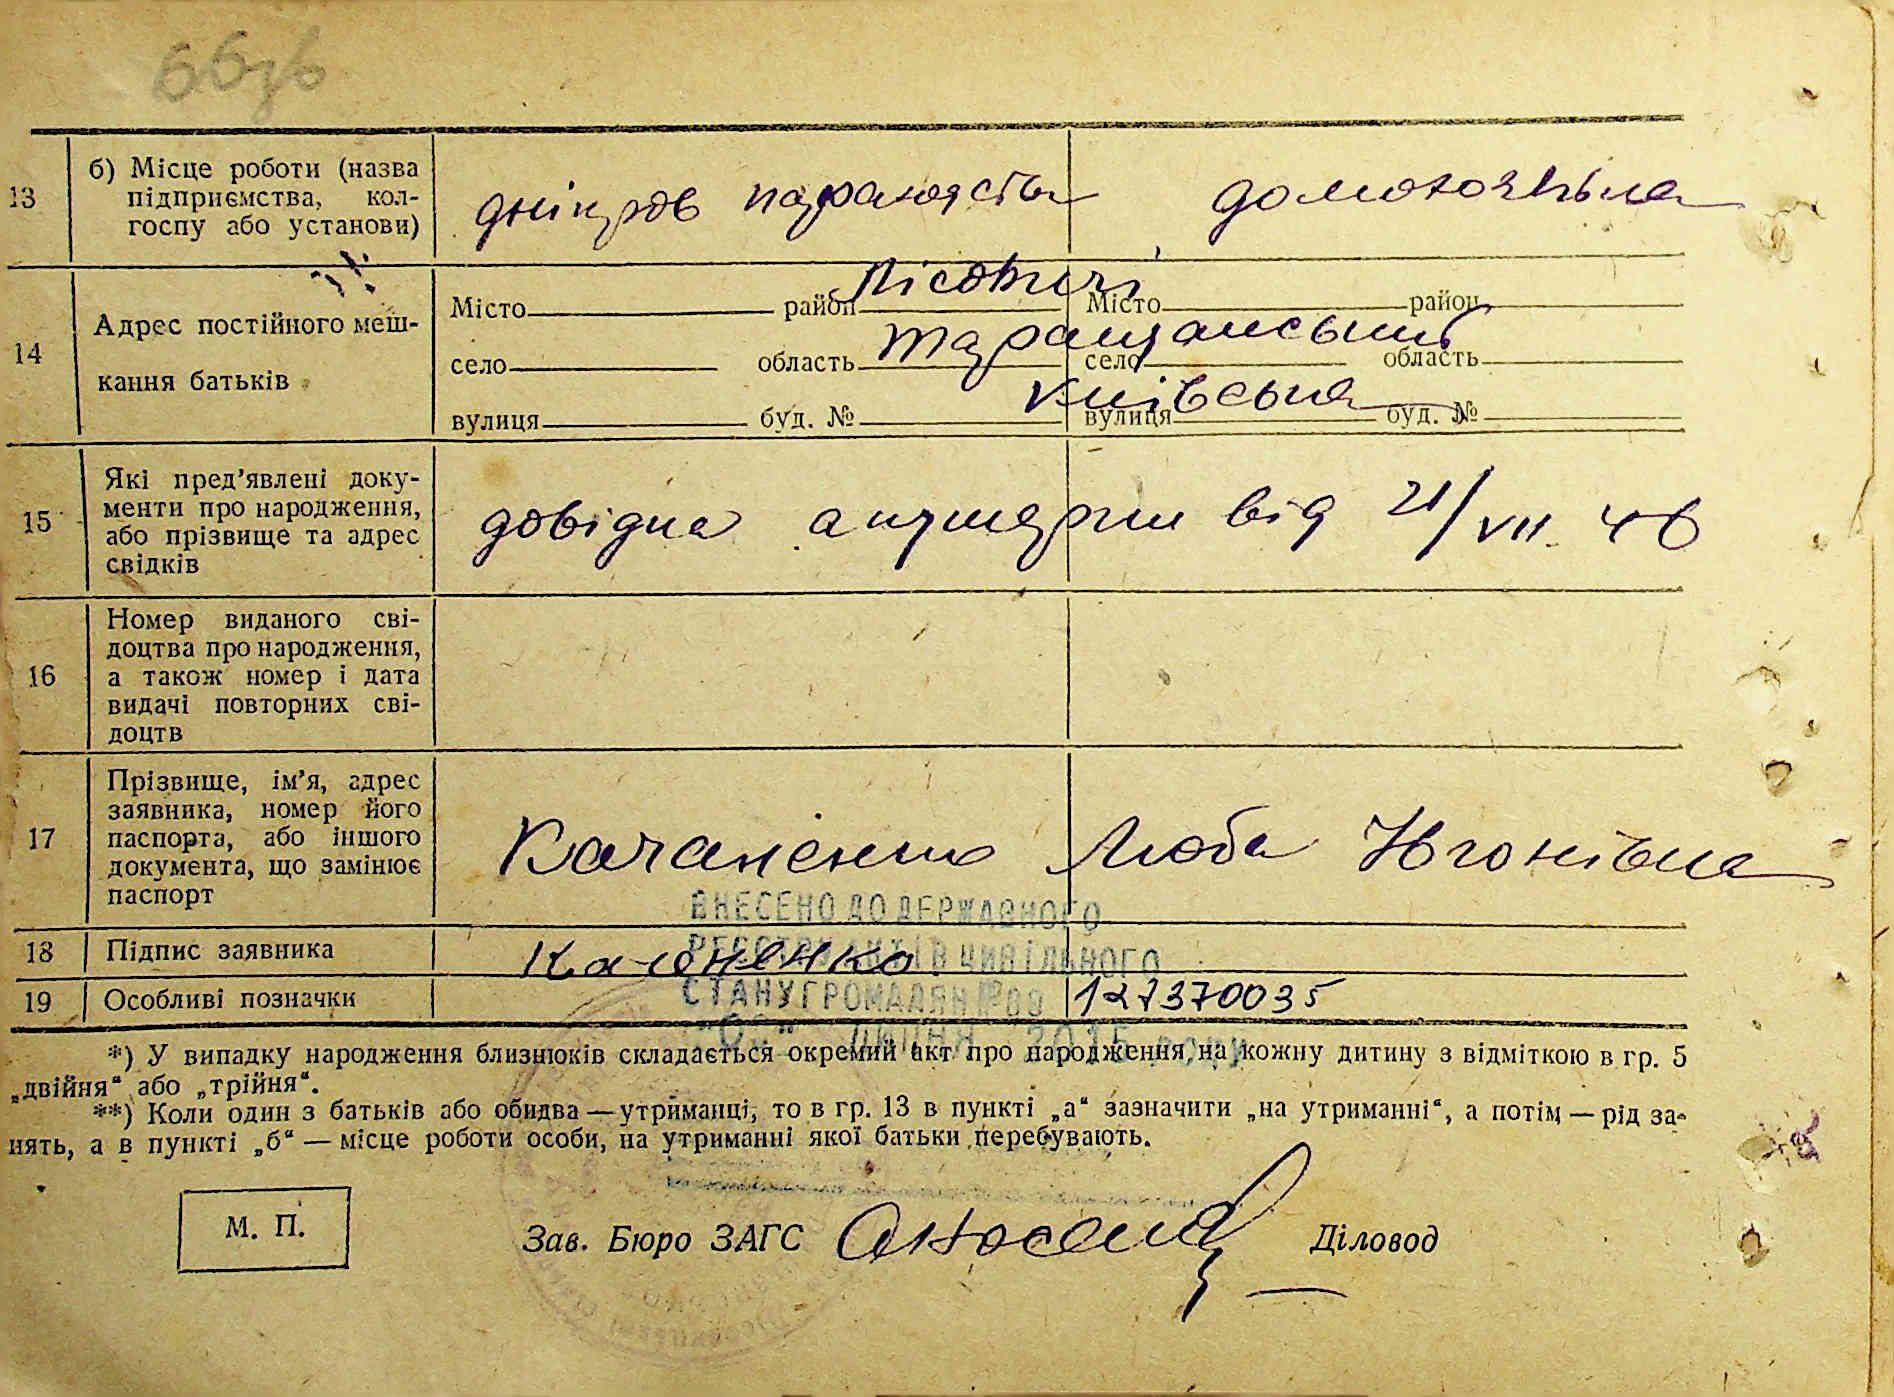 66зв
13 б) Місце роботи (назва
підприємства, кол-
госпу або установи)
дніпров пароходство домохозяйка
14 Адрес постійного меш-
кання батьків
Місто район Лісовичі Місто район
село область Таращанський село область
вулиця буд. № Київська вулиця буд. №
15 Які пред’явлені доку-
менти про народження,
або прізвище та адрес
свідків
довідка акушерки від 21/VII 46
16 Номер виданого сві-
доцтва про народження,
а також номер і дата
видачі повторних сві-
доцтв
17 Прізвище, ім’я, адрес
заявника, номер його
паспорта, або іншого
документа, що замінює
паспорт
Качаненко Люба
ВНЕСЕНО ДО ДЕРЖАВНОГО
РЕЄСТРУ АКТІВ ЦИВІЛЬНОГО
СТАНУ ГРОМАДЯН
ЛИПНЯ 2015 року
18 Підпис заявника Качаненко
19 Особливі позначки 127370035
*) У випадку народження близнюків складається окремий акт про народження на кожну дитину з відміткою в гр. 5
„двійня“ або „трійня“.
**) Коли один з батьків або обидва — утриманці, то в гр. 13 в пункті „а“ зазначити „на утриманні“, а потім — рід за-
нять, а в пункті „б“ — місце роботи особи, на утриманні якої батьки перебувають.
М. П.
Зав. Бюро ЗАГС Діловод